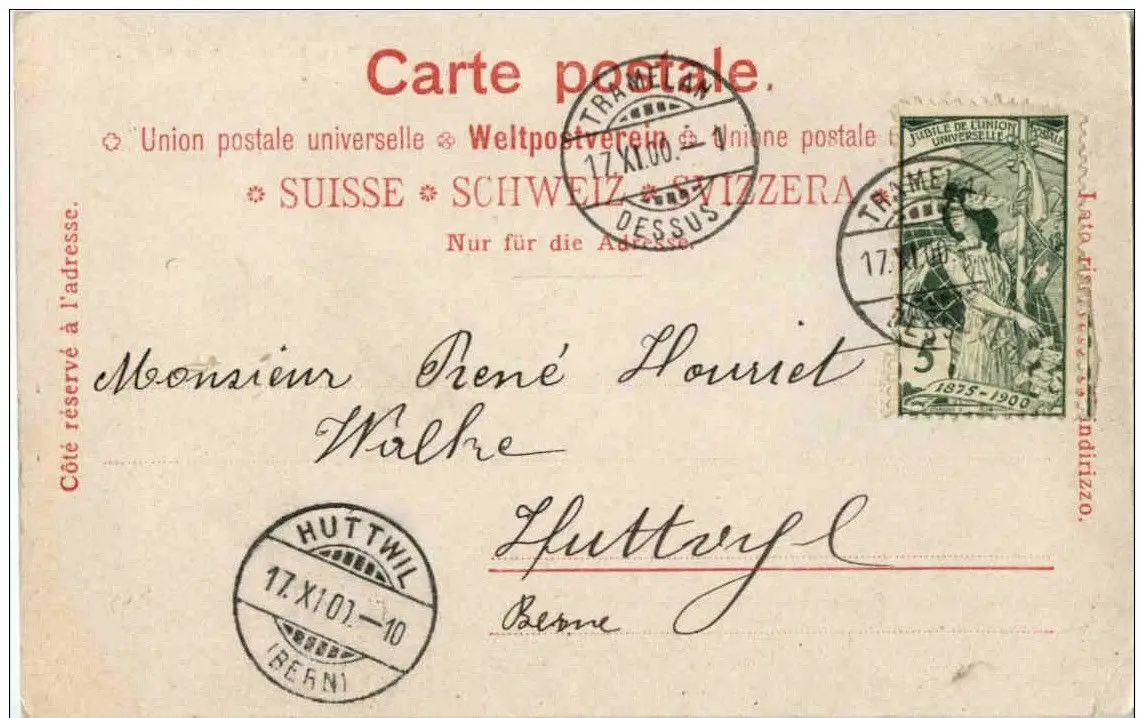 Carte postale.
Union postale universelle Weltpostverein Unione postale
SUISSE * SCHWEIZ * SVIZZERA *
Nur für die Adresse.
Côté réservé à l'adresse.
indirizzo.
TRAMELAN
17.XI.00.–1
DESSUS
JUBILÉ DE L'UNION POSTALE
UNIVERSELLE
5
1875–1900
TRAMELAN
17.XI.00.
DESS
Monsieur René Houriet
Walke
Huttwyl
Berne
HUTTWIL
17.XI.00.–10
(BERN)